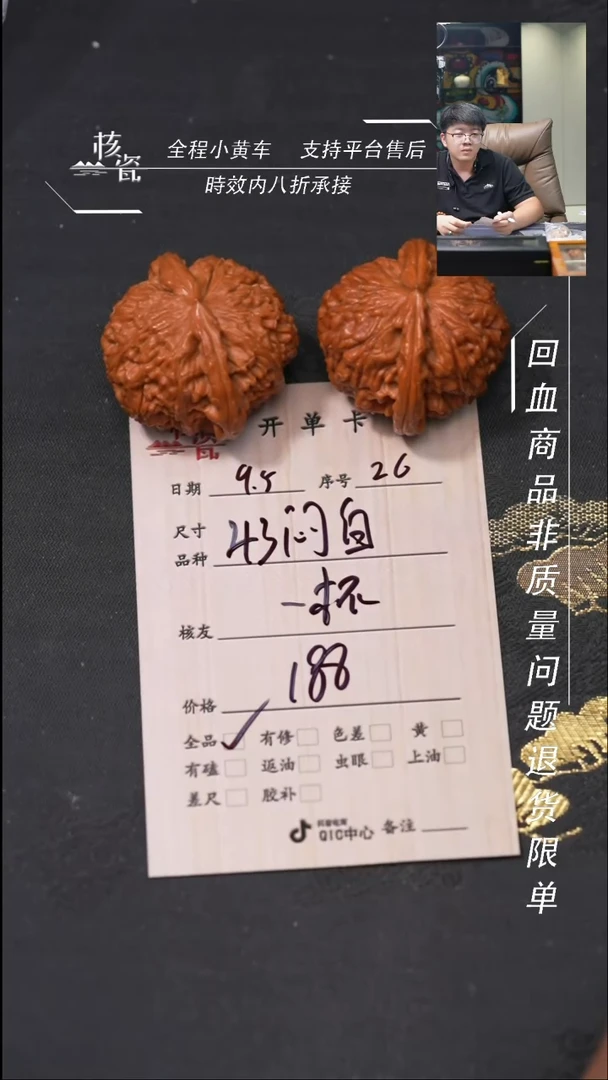 核瓷
全程小黄车 支持平台售后
時效内八折承接
回血商品非质量问题退货限单
开单卡
日期 9.5 序号 26
尺寸
品种 43闷自
核友 一杯
价格 188
全品 ✓ 有修 色差 黄
有磕 返油 虫眼 上油
差尺 胶补
QIC中心 备注